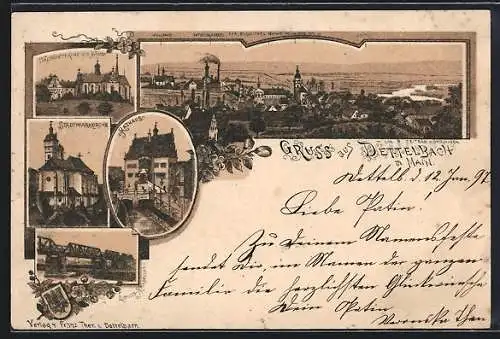 STADTPFARRKIRCHE
RATHAUS
GRUSS AUS DETTELBACH
A. MAIN.
Dettelb. d. 12 Jan. 97
Liebe Patin!
Zu Deinem Namensfeste
sendet Dir, im Namen der ganzen
Familie die herzlichsten Glückwünsche
Dein Patin
Veronika Then
Verlag v. Franz Then i. Dettelbach.